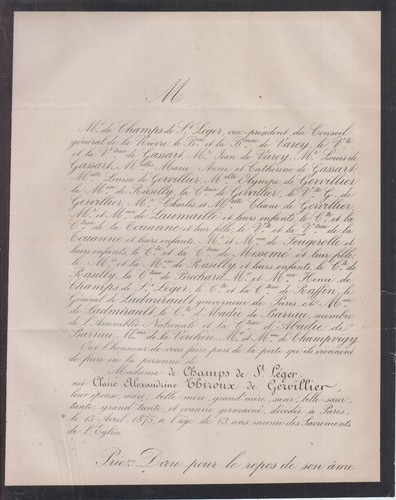 M
Mr. de Champs de St. Léger, vice-président du Conseil
général de la Nièvre, le Bon et la Bonne de Varey, le Vte
et la Vtesse de Gassart, Mr. Jean de Varey, Mr. Louis de
Gassart, Melles Marie, Anne et Catherine de Gassart,
Melle Louise de Gervillier, Melle Olympe de Gervillier
la Mise de Rasilly, la Ctesse de Gervillier, le Vte G. de
Gervillier, Mr. Charles et Melle Eliane de Gervillier,
Mr. et Mme de Laumaillé et leurs enfants, le Cte et la
Ctesse de la Couanne et leur fille, le Vte et la Vtesse de la
Couanne et leurs enfants, Mr. et Mme de Fougerolle et
leurs enfants, le Cte et la Ctesse de Messemé et leur fille,
le Mis et la Mise de Rasilly et leurs enfants, le Cte de
Rasilly, la Ctesse de Bréchard, Mr. et Mme Henri de
Champs de St. Léger, le Cte et la Ctesse de Raffin, le
Général de Ladmirault gouverneur de Paris, et Mme
de Ladmirault, le Cte d'Abadie de Barrau, membre
de l'Assemblée Nationale et la Ctesse d'Abadie de
Barrau, Mme de la Verchère, Mr. et Mme de Champvigy
Ont l'honneur de vous faire part de la perte qu'ils viennent
de faire en la personne de
Madame de Champs de St. Léger
née Claire Alexandrine Thiroux de Gervillier,
leur épouse, mère, belle-mère, grand'mère, sœur, belle-sœur,
tante, grand'tante et cousine germaine, décédée à Paris,
le 15 Avril 1875, à l'âge de 63 ans munie des Sacrements
de l'Eglise.
Priez Dieu pour le repos de son âme